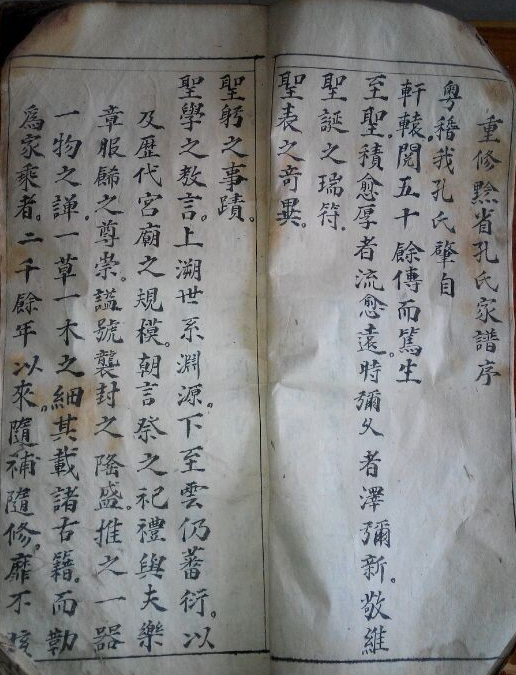 重修黔省孔氏家譜序
粵稽我孔氏肇自
軒轅。閱五十餘傳而篤生
至聖。積愈厚者流愈遠。時彌久者澤彌新。敬維
聖誕之瑞符。
聖表之奇異。
聖躬之事蹟。
聖學之教言。上溯世系淵源。下至雲仍蕃衍。以
及歷代宮廟之規模。朝言祭之祀禮與夫樂
章服飾之尊崇。諡號襲封之隆盛。推之一器
一物之詳。一草一木之細。其載諸古籍。而勒
為家乘者。二千餘年以來。隨補隨修。靡不